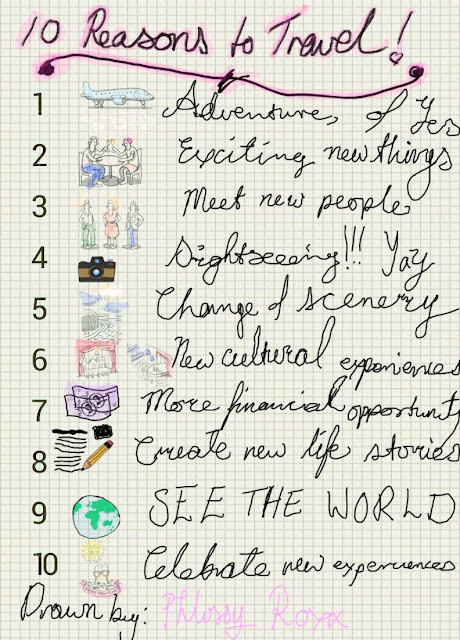 10 Reasons to Travel!
1 Adventure, of Yes
2 Exciting new things
3 Meet new people
4 Sightseeing!!! Yay
5 Change of scenery
6 New cultural experiences
7 More financial opportunity
8 Create new life stories
9 SEE THE WORLD
10 Celebrate new experiences
Drawn by: Phlossy Roxx